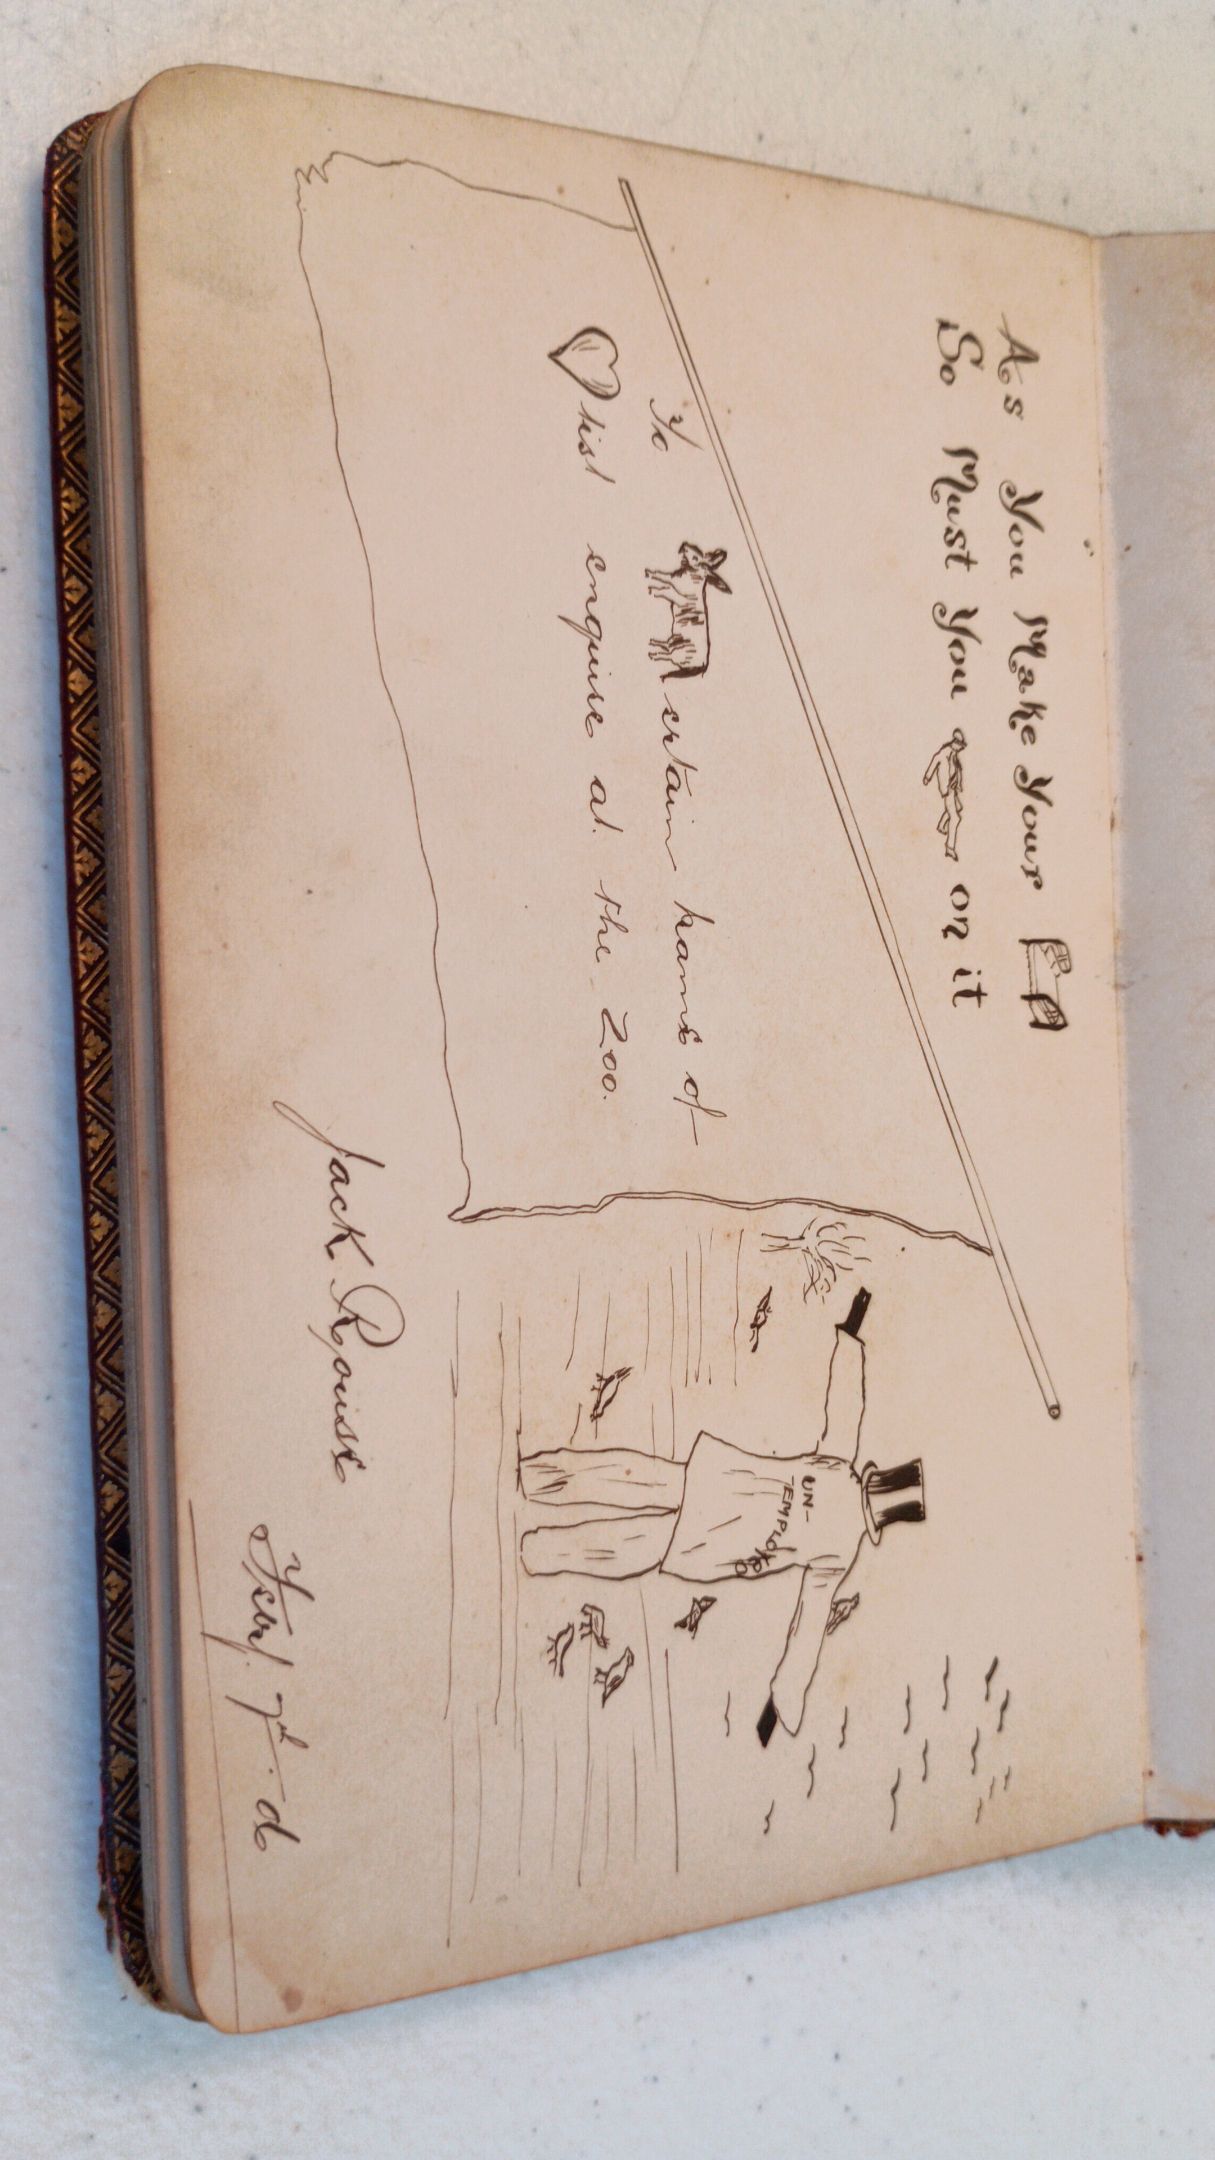 As You Make Your
So Must You on it
To ertain name of
tist enquire at the Zoo.
UN-
EMPLOYED
Jack Rouse